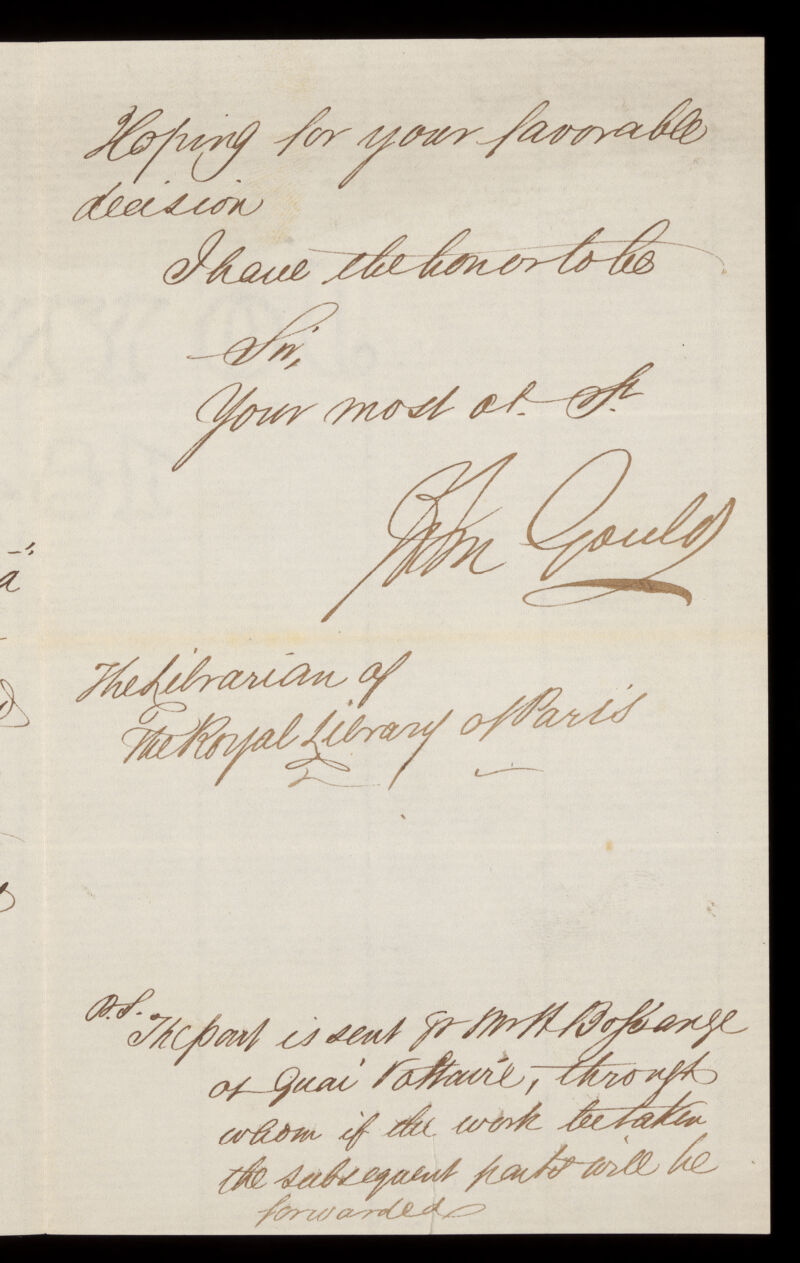 Hoping for your favorable
decision
I have the honor to be
Sir,
Your most ot. St.
John Gould
The Librarian of
The Royal Library of Paris
P.S.
The part is sent pr Mr H Bossange
of Quai Voltaire, through
whom if the work be taken
the subsequent parts will be
forwarded